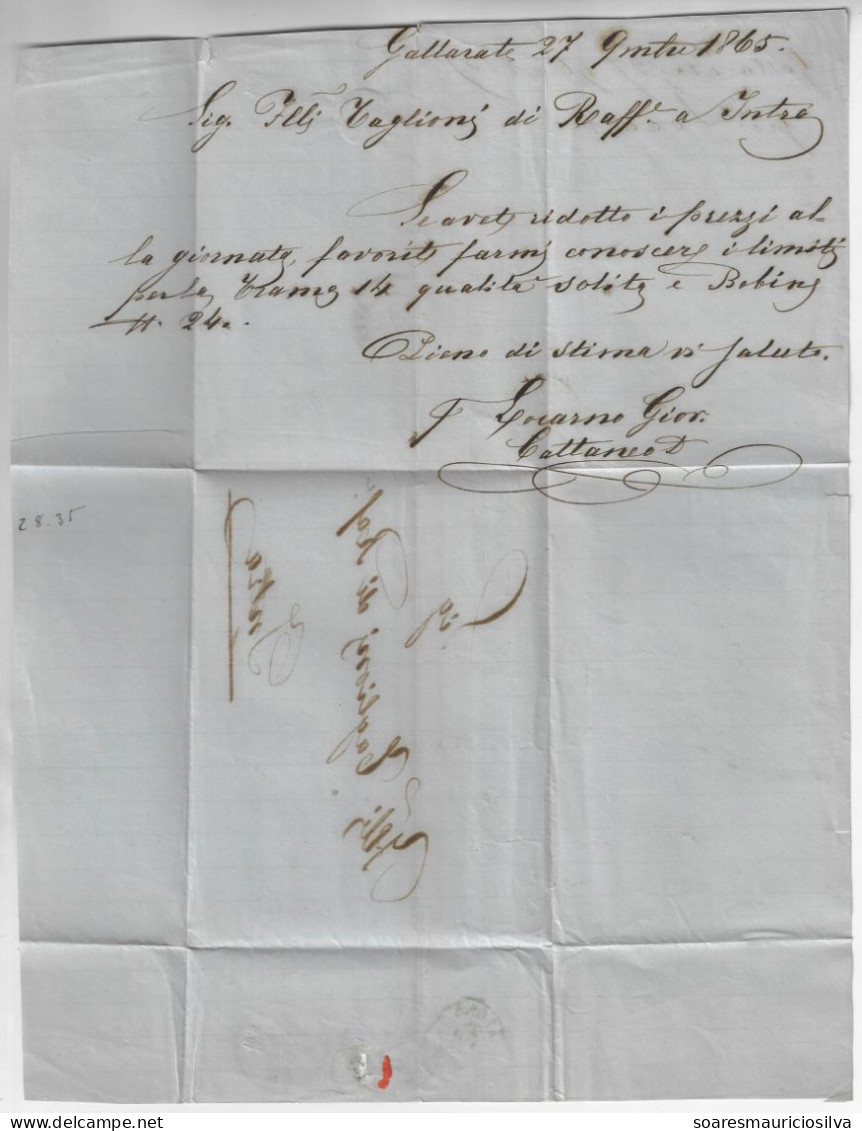 Gallarate 27 9mbre 1865.
Sig. Flli Taglioni di Raff.e a Intra
Se avete ridotto i prezzi al-
la giornata, favorite farmi conoscere i limiti
per la Trama 14 qualità solita e Bobine
N. 24.
Pieno di stima vi saluto.
Locarno Giov.
Cattaneo
28.35
Intra
soaresmauriciosilva